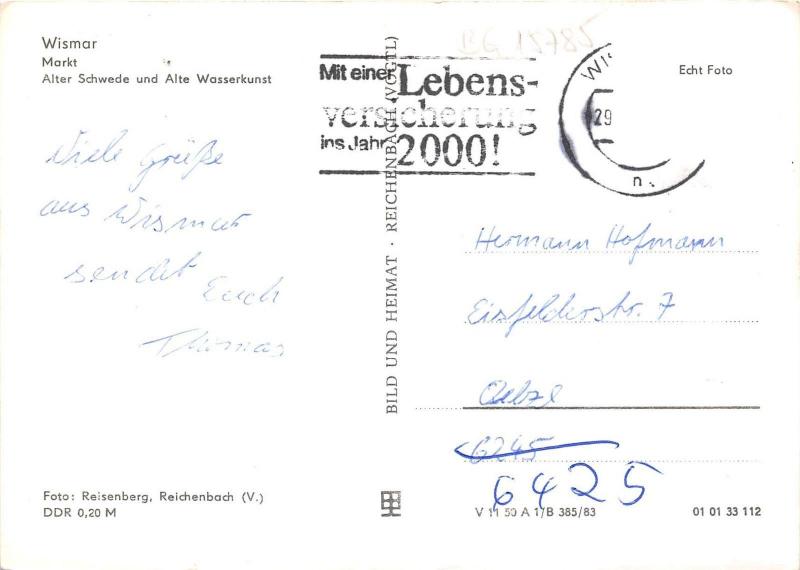 Wismar
Markt
Alter Schwede und Alte Wasserkunst
BG 15785
Mit einer Lebens-
versicherung
ins Jahr 2000!
WIS
29
n.
Echt Foto
Viele Grüße
aus Wismar
sendet Euch
Thomas
BILD UND HEIMAT · REICHENBACH (VOGTL)
Hermann Hofmann
Eisfelderstr. 7
6245
6425
Foto: Reisenberg, Reichenbach (V.)
DDR 0,20 M
V 11 50 A 1/B 385/83
01 01 33 112